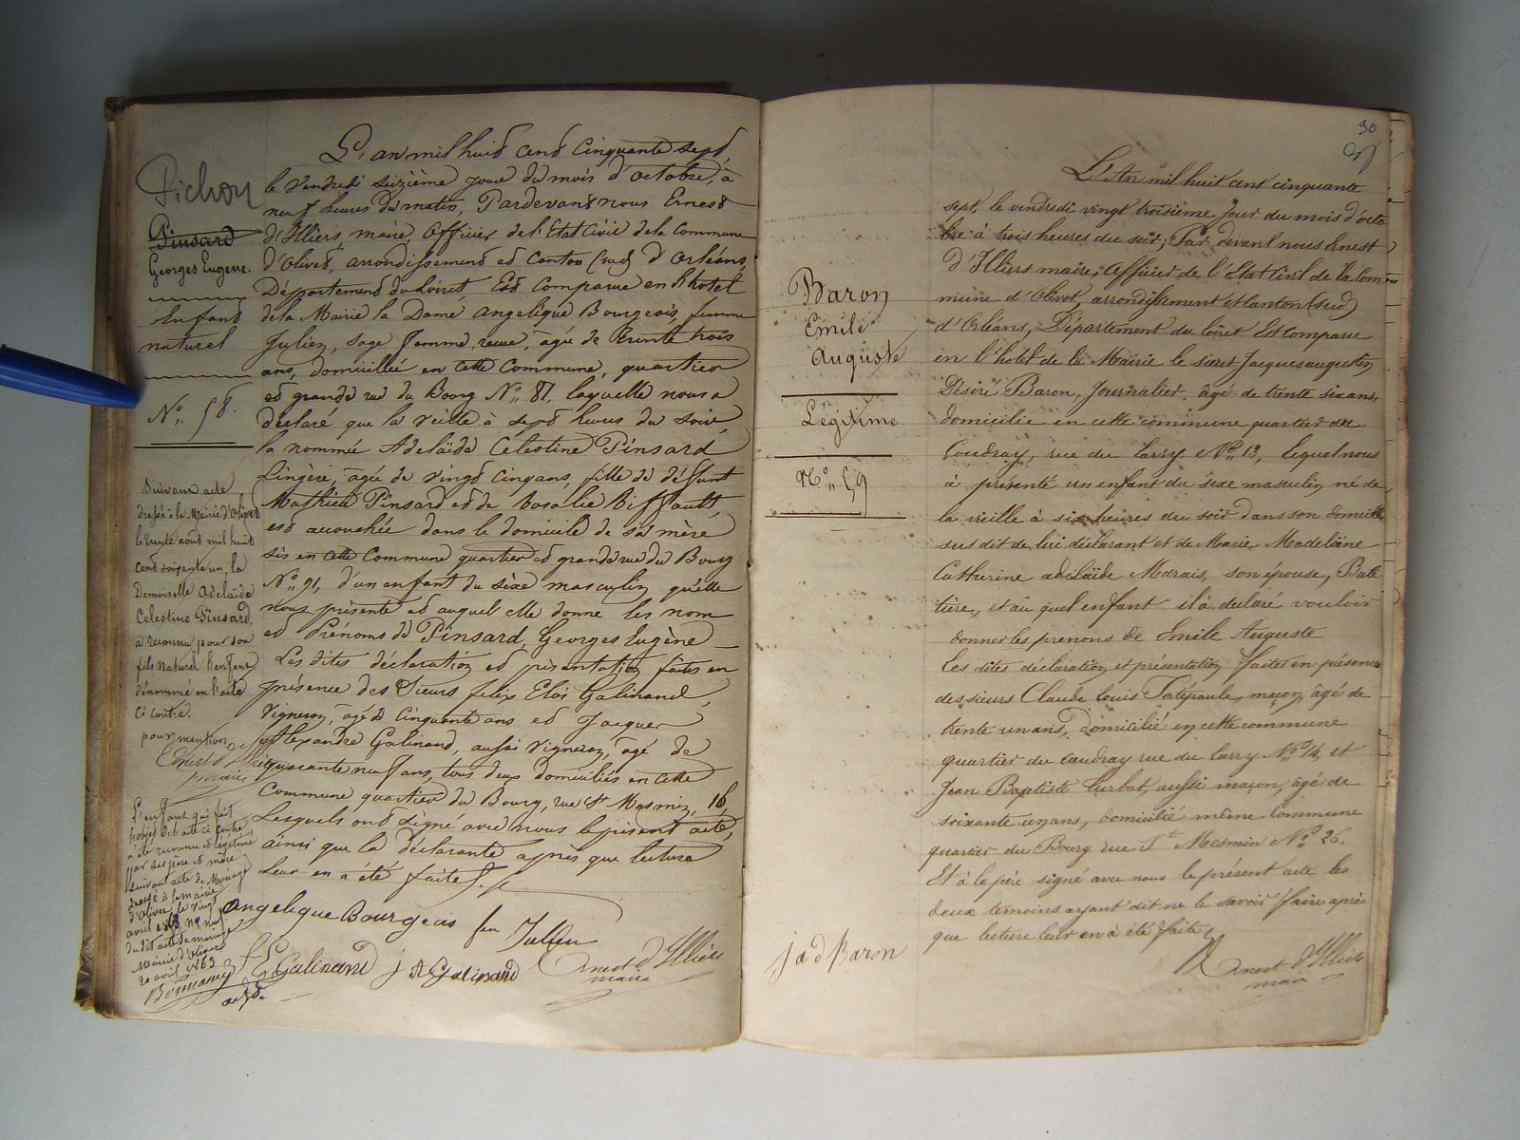 Pichon
Pinsard
Georges Eugene.
Enfant
naturel
No. 58.
Suivant acte
dressé à la Mairie d'Olivet
le trente aout mil huit
cent soixante un, la
Demoiselle Adelaïde
Celestine Pinsard,
a reconnu pour son
fils naturel l'enfant
dénommé en l'acte
ci contre.
pour mention,
Ernest d'Illiers
maire
L'enfant qui fait
l'objet de l'acte ci contre
a été reconnu et légitimé
par ses père et mère
suivant acte de Mariage
dressé à la mairie
d'Olivet, le vingt
avril 1863 No neuf
du dit acte de mariage
Mairie d'Olivet
20 avril 1863
L'an mil huit cent Cinquante sept,
le Vendredi seizième jour du mois d'octobre, à
neuf heures du matin, Pardevant nous Ernest
d'Illiers, maire, Officier de l'Etat Civil de la Commune
d'Olivet, arrondissement et Canton (sud) d'Orléans,
Département du Loiret Est Comparue en l'hotel
de la Mairie la Dame Angelique Bourgeois, femme
Julien, Sage femme, reçue, agée de trente trois
ans, domiciliée en cette Commune, quartier
et grande rue du Bourg No. 87. laquelle nous a
déclaré que la veille à sept heures du soir
la nommée Adelaïde Celestine Pinsard
Lingère, agée de vingt cinq ans, fille de défunt
Mathieu Pinsard et de Rosalie Biffault,
est accouchée dans le domicile de sa mère
sis en cette Commune quartier et grande rue du Bourg
No. 91, d'un enfant du sèxe masculin qu'elle
nous présente et auquel elle donne les nom
et Prénoms de Pinsard, Georges Eugène
Les dites déclaration et présentation faites en
présence des Sieurs felix Eloi Galinand,
Vigneron, agé de Cinquante ans et Jacques
Alexandre Galinand, aussi Vigneron, agé de
quarante neuf ans, tous deux domiciliés en cette
Commune quartier du Bourg, rue St Mesmin, 16,
Lesquels ont signé avec nous le présent acte,
ainsi que la déclarante après que lecture
leur en a été faite.
Angelique Bourgeois fe Julien
f E Galinand j A Galinand Ernest d'Illiers
maire
30
Baron
Emile
Auguste
Légitime
No. 59
L'An mil huit cent cinquante
sept, le vendredi vingt troisième Jour du mois d'octo
bre à trois heures du soir, Par devant nous Ernest
d'Illiers maire, officier de l'Etat Civil de la Com
mune d'Olivet, arrondissement et Canton (sud)
d'Orléans, Département du Loiret Est Comparu
en l'hôtel de la Mairie le sieur Jacques augustin
Désiré Baron, Journalier, âgé de trente six ans,
domicilié en cette commune quartier du
Coudray, rue du Larry No. 13, lequel nous
a présenté un enfant du sexe masculin né de
la veille à six heures du soir dans son domicile
sus dit de lui déclarant et de Marie Madeleine
Catherine adelaïde Marais, son épouse,
et au quel enfant il a déclaré vouloir
donner les prenoms de Emile Auguste
Les dites déclaration et présentation faites en présence
des sieurs Claude Louis maçon, âgé de
trente un ans, domicilié en cette commune
quartier du Coudray rue du Larry No. 14, et
Jean Baptiste Curbat, aussi maçon, âgé de
soixante un ans, domicilié même Commune
quartier du Bourg rue St Mesmin No. 26.
Et a le père signé avec nous le présent acte les
deux temoins ayant dit ne le savoir faire après
que lecture leur en a été faite
j a d Baron
Ernest d'Illiers
maire